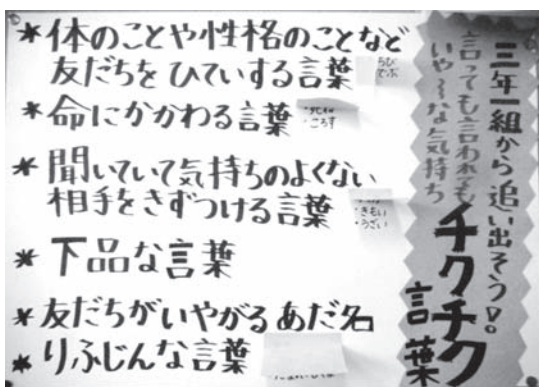 三年一組から追い出そう!!
言っても言われても
いや〜な気持ち
チクチク
言葉
*体のことや性格のことなど
友だちをひていする言葉
ちび
でぶ
*命にかかわる言葉
・死ね
・ころす
*聞いていて気持ちのよくない
相手をきずつける言葉
・きもい
・うざい
*下品な言葉
*友だちがいやがるあだ名
*りふじんな言葉